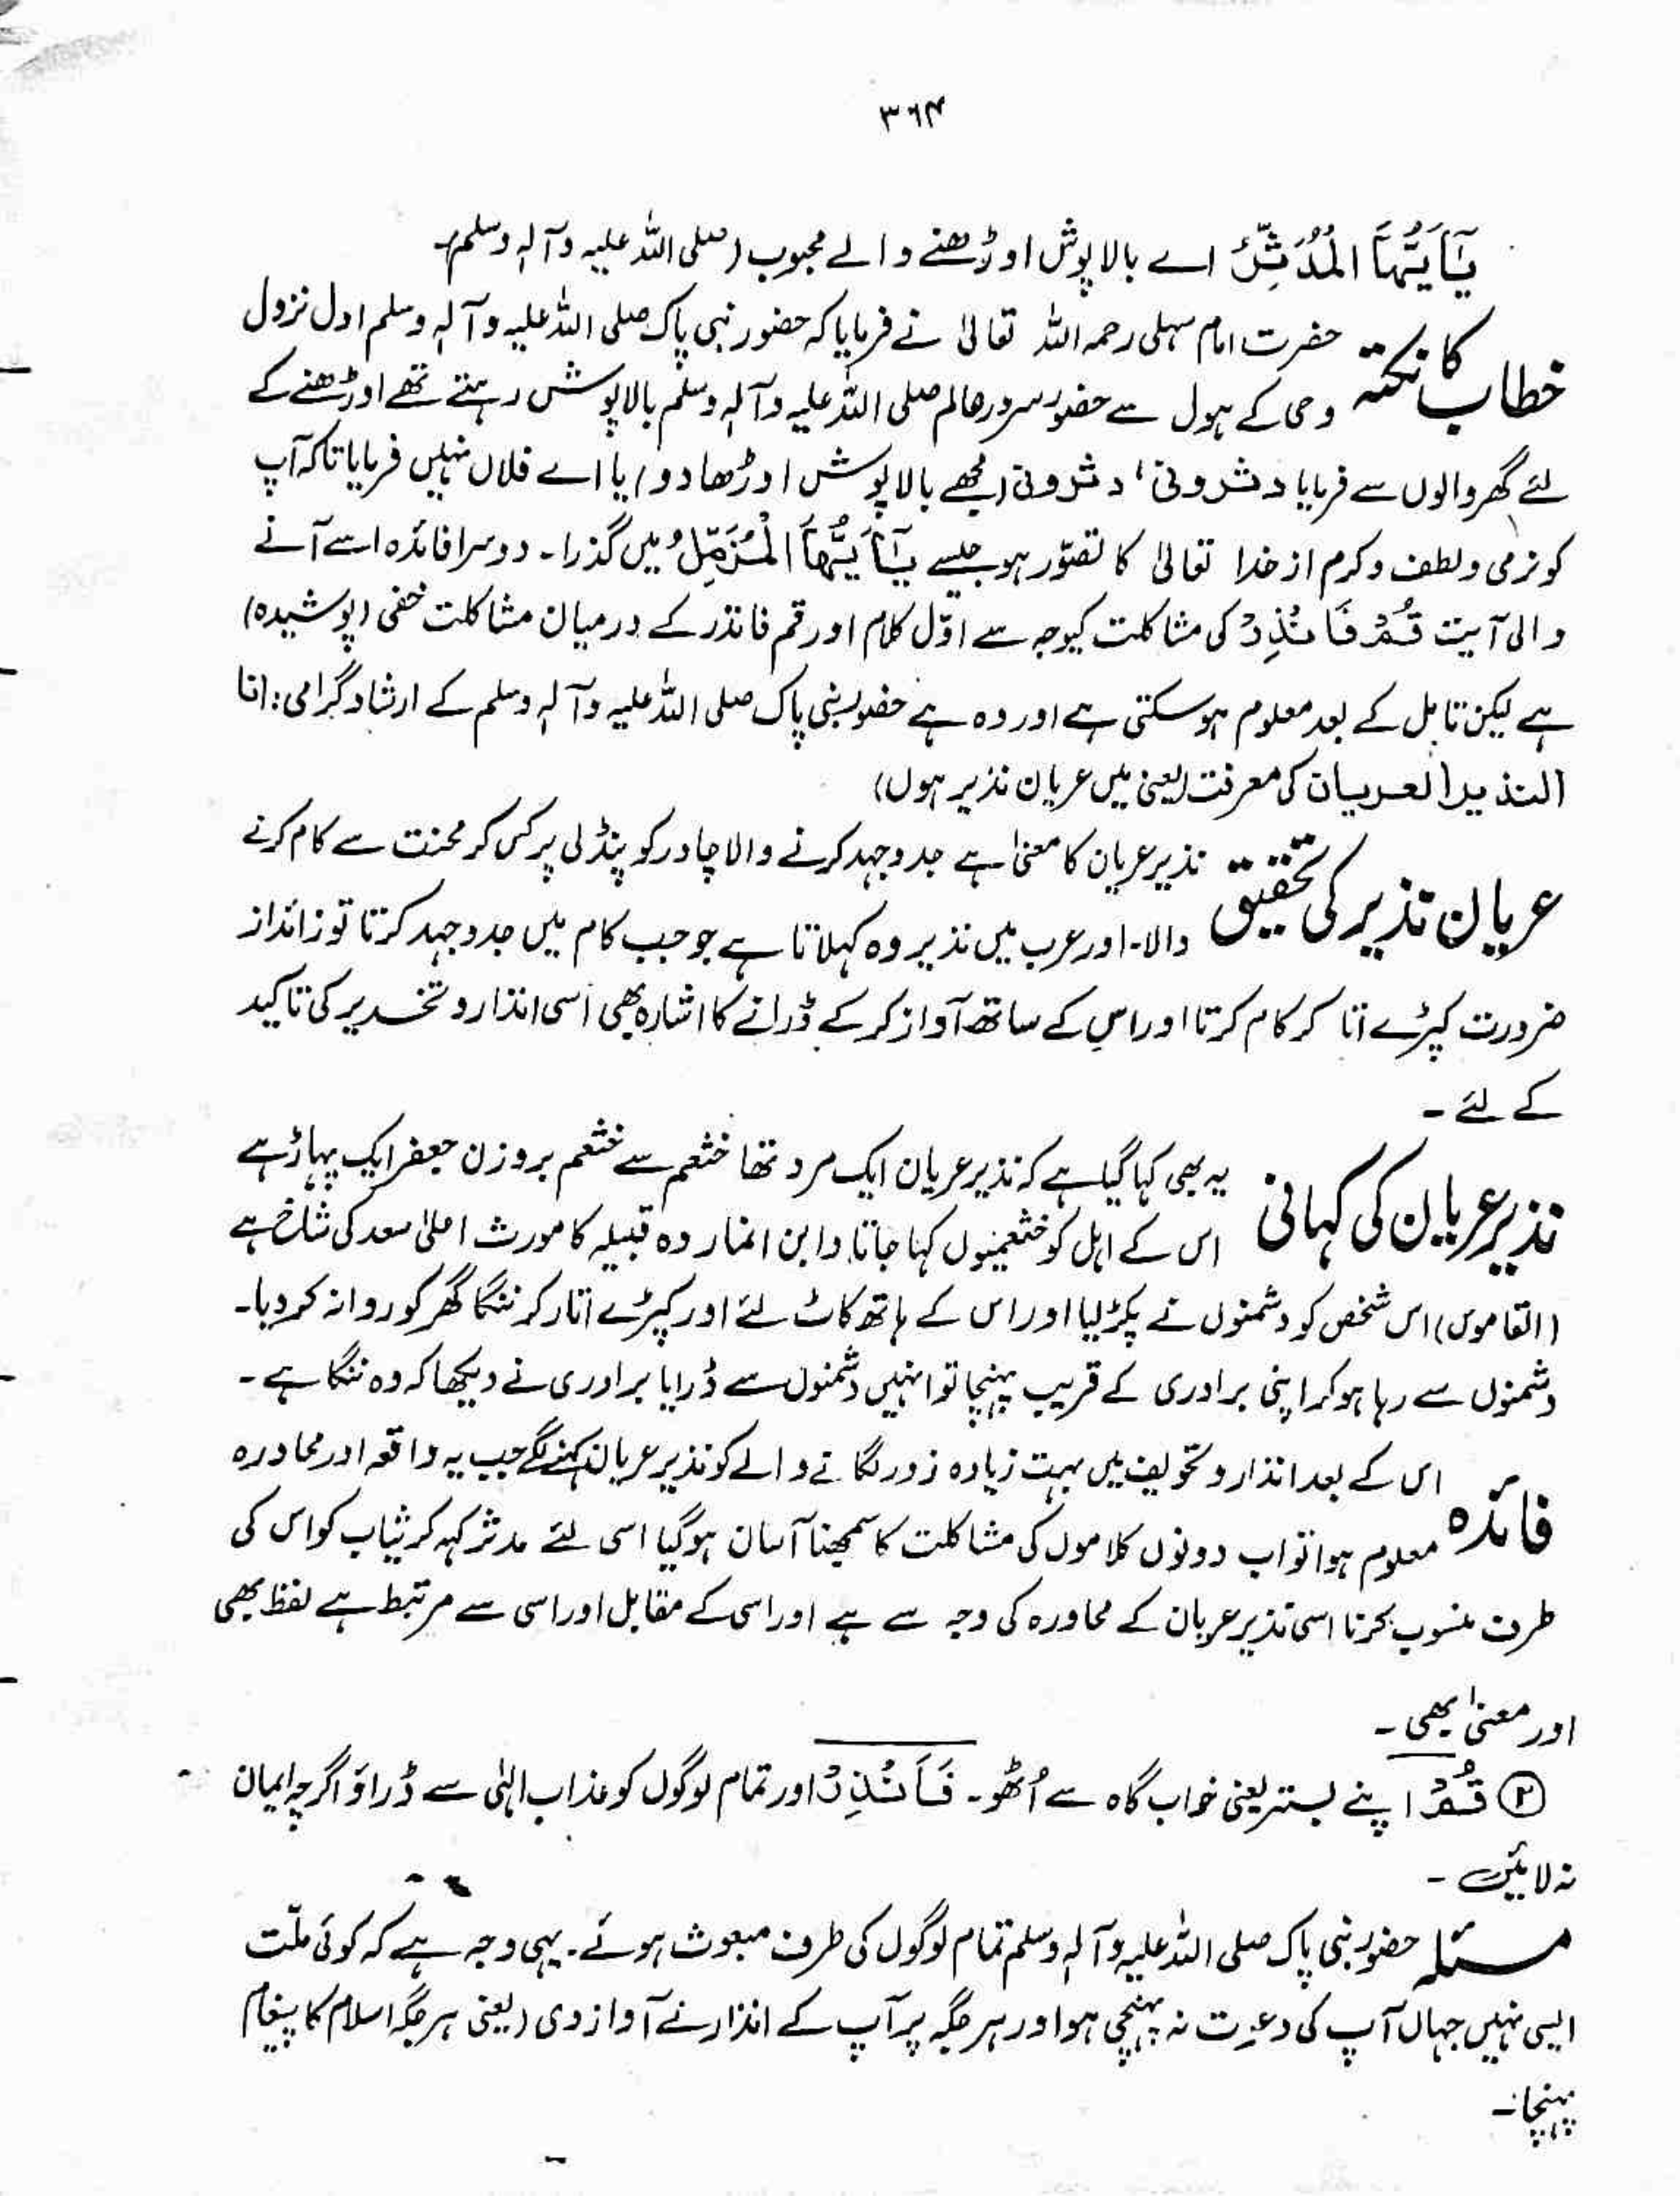 ۳۶۴
يَآاَيُّهَا الْمُدَّثِّرُ اے بالا پوش اوڑھنے والے محبوب (صلی اللہ علیہ وآلہٖ وسلم)۔
خطاب کا نکتہ حضرت امام سہلی رحمہ اللہ تعالیٰ نے فرمایا کہ حضور نبی پاک صلی اللہ علیہ وآلہٖ وسلم اول نزول
وحی کے ہول سے حضور سرور عالم صلی اللہ علیہ وآلہٖ وسلم بالا پوش رہتے تھے اوڑھنے کے
لئے گھر والوں سے فرمایا دثرونی، دثرونی (مجھے بالا پوش اوڑھا دو) یا اے فلاں نہیں فرمایا تاکہ آپ
کو نرمی ولطف وکرم از خدا تعالیٰ کا تصوّر ہو جیسے يَآاَيُّهَا الْمُزَّمِّلُ میں گذرا۔ دوسرا فائدہ اسے آنے
والی آیت قُمْ فَاَنْذِرْ کی مشاکلت کیوجہ سے اوّل کلام اور قم فانذر کے درمیان مشاکلت خفی (پوشیدہ)
ہے لیکن تامل کے بعد معلوم ہوسکتی ہے اور وہ ہے حضور نبی پاک صلی اللہ علیہ وآلہٖ وسلم کے ارشاد گرامی: انا
النذیر العریان کی معرفت (یعنی میں عریاں نذیر ہوں)
عریاں نذیر کی تحقیق نذیر عریاں کا معنیٰ ہے جدوجہد کرنے والا چادر کو پنڈلی پر کس کر محنت سے کام کرنے
والا۔ اور عرب میں نذیر وہ کہلاتا ہے جو جب کام میں جدوجہد کرتا تو زائد از
ضرورت کپڑے اتا کر کام کرتا اور اس کے ساتھ آواز کر کے ڈرانے کا اشارہ بھی اسی انذار و تخدیر کی تاکید
کے لئے۔
نذیر عریاں کی کہانی یہ بھی کہا گیا ہے کہ نذیر عریان ایک مرد تھا خثعم سے خثعم بروزن جعفر ایک پہاڑ ہے
اس کے اہل کو خثعمیوں کہا جاتا وابن انمار وہ قبیلہ کا مورث اعلیٰ سعد کی شاخ ہے
(القاموس) اس شخص کو دشمنوں نے پکڑ لیا اور اس کے ہاتھ کاٹ لئے اور کپڑے اتار کر ننگا گھر کو روانہ کردیا۔
دشمنوں سے رہا ہوکر اپنی برادری کے قریب پہنچا تو انہیں دشمنوں سے ڈرایا برادری نے دیکھا کہ وہ ننگا ہے۔
فائدہ اس کے بعد انذار و تخویف میں بہت زیادہ زور لگانے والے کو نذیر عریاں کہنے لگے جب یہ واقعہ اور محاورہ
معلوم ہوا تو اب دونوں کلاموں کی مشاکلت کا سمجھنا آسان ہوگیا اسی لئے مدثر کہہ کر ثیاب کو اس کی
طرف منسوب کرنا اسی نذیر عریاں کے محاورہ کی وجہ سے ہے اور اسی کے مقابل اور اسی سے مرتبط ہے لفظ بھی
اور معنیٰ بھی۔
(۲) قُمْ اپنے بستر یعنی خواب گاہ سے اُٹھو۔ فَاَنْذِرْ اور تمام لوگوں کو عذاب الٰہی سے ڈراؤ اگرچہ ایمان
نہ لائیں۔
مسئلہ حضور نبی پاک صلی اللہ علیہ وآلہٖ وسلم تمام لوگوں کی طرف مبعوث ہوئے۔ یہی وجہ ہے کہ کوئی ملّت
ایسی نہیں جہاں آپ کی دعوت نہ پہنچی ہو اور ہر جگہ پر آپ کے انذار نے آواز دی (یعنی ہر جگہ اسلام کا پیغام
پہنچا۔